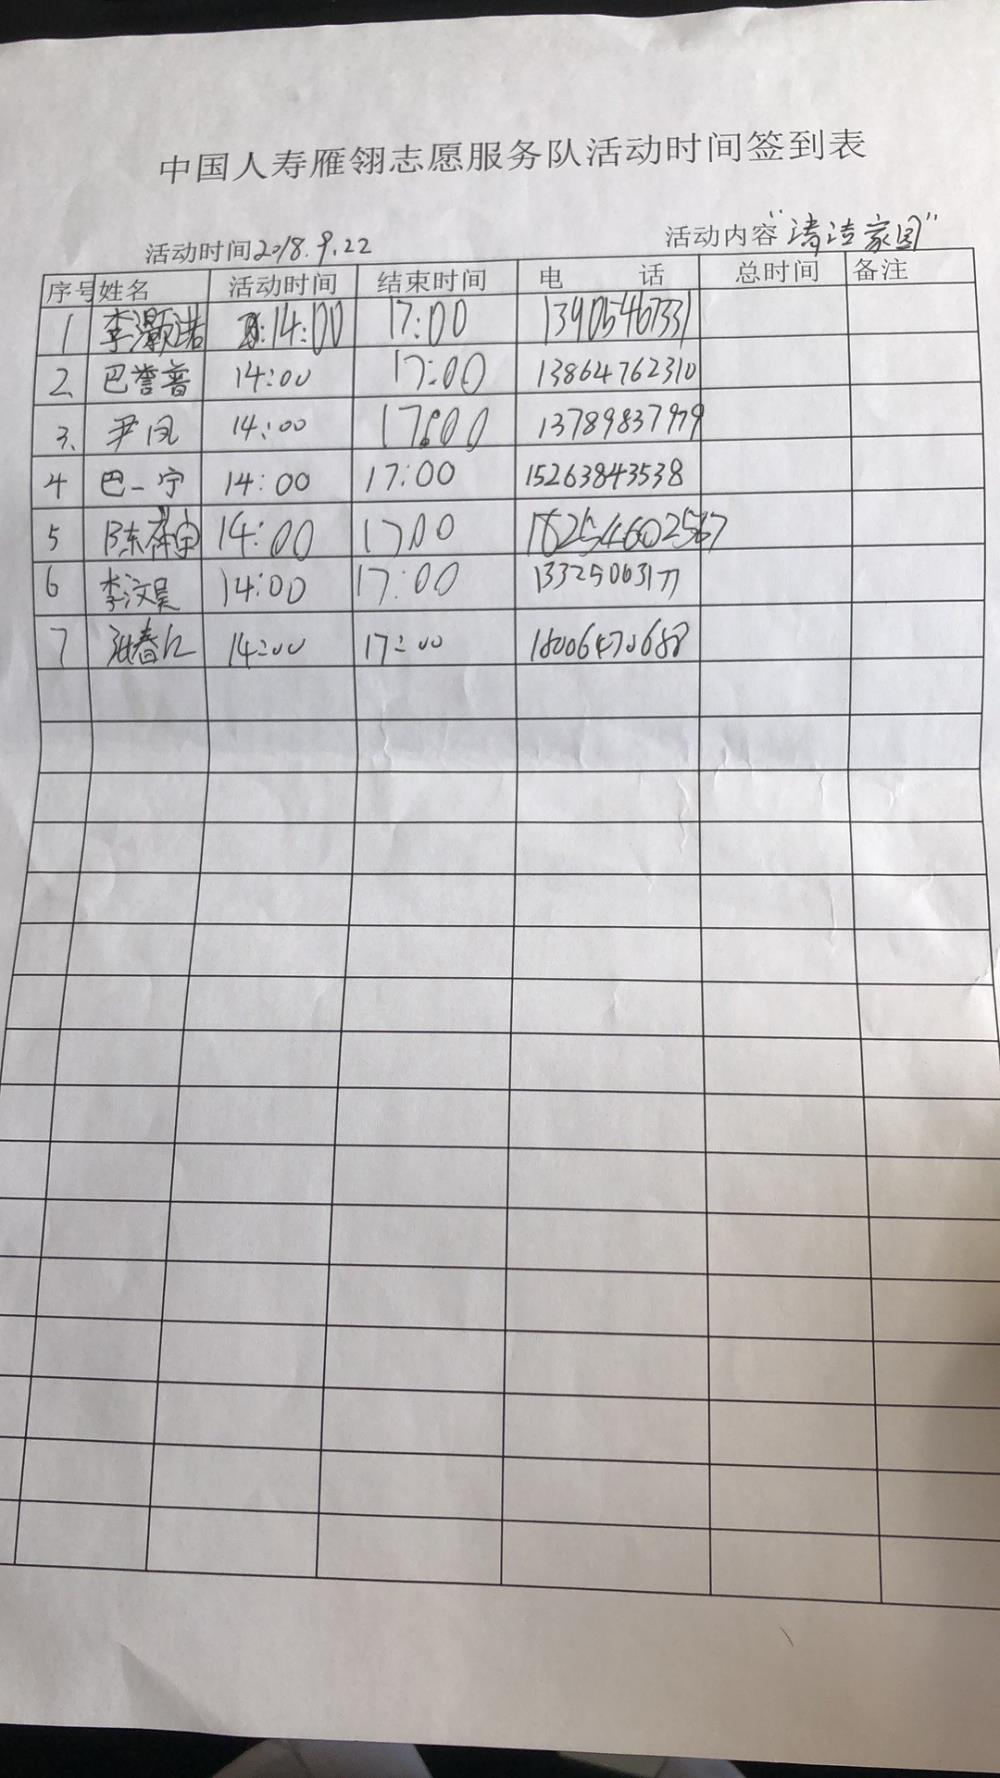 中国人寿雁翎志愿服务队活动时间签到表
活动时间2018.9.22 活动内容"清洁家园"
序号 姓名 活动时间 结束时间 电 话 总时间 备注
1 李灏诺 14:00 17:00 13905467331
2、 巴誉普 14:00 17:00 13864762310
3、 尹凤 14:00 17:00 13789837979
4 巴一宁 14:00 17:00 15263843538
5 陈春宇 14:00 17:00 18254602567
6 李汶昊 14:00 17:00
7 14:00 17:00 18006470688